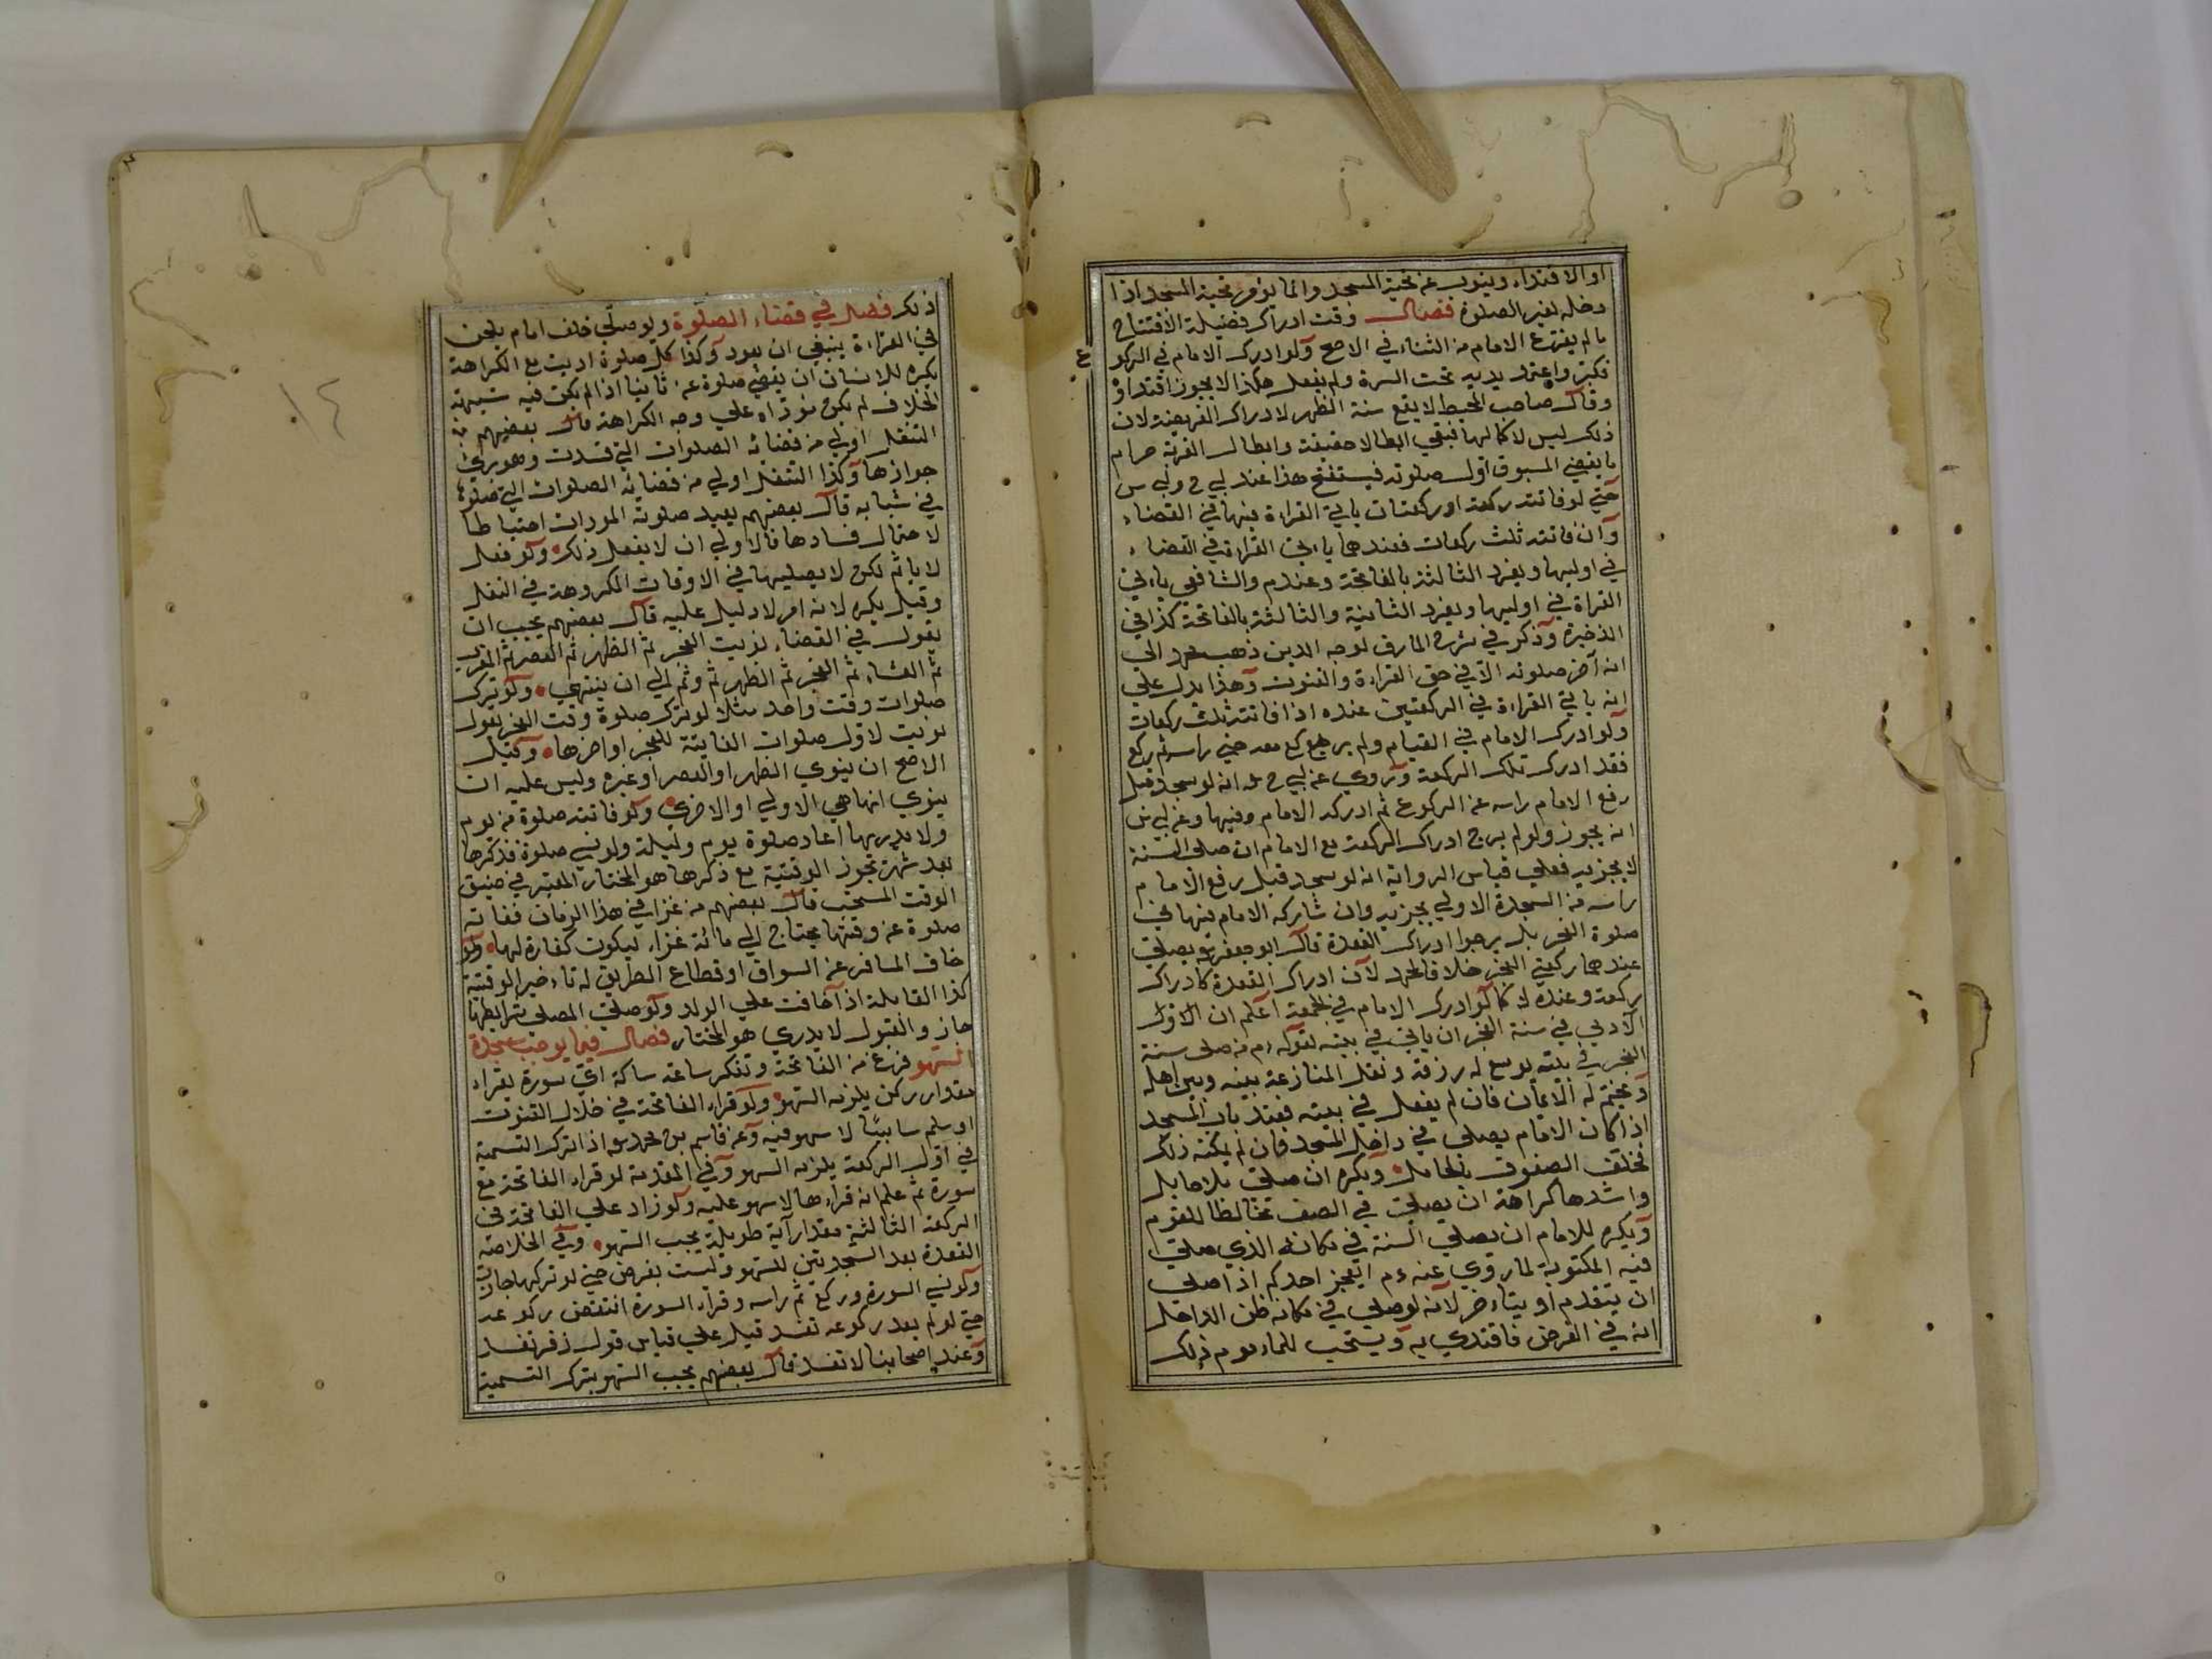 او الاقتداء وينوب عن تحية المسجد وانما يؤمر بتحية المسجد اذا
دخله لغير الصلوة فصل وقت ادراك فضيلة الافتتاح
ما لم يفرغ الامام من الثناء في الاصح ولو ادرك الامام في الركو
ع
فكبر واعتمد يديه تحت السرة ولم يفعل هكذا لا يجوز اقتداؤ
وقال صاحب المحيط لا يقع سنة الظهر لادراك الفريضة لان
ذلك ليس لاكمالها فبقي ابطالا حقيقة وابطال القربة حرام
ما يقضي المسبوق اول صلوته فيستفتح هذا عند ابي ح وابي س
حتي لو فاتته ركعة او ركعتان ياتي القراءة فيها في القضاء
وان فاتته ثلث ركعات فعندهما ياتي القراءة في القضاء
في اوليها ويفرد الثالثة بالفاتحة وعند م والشافعي ياتي
القراة في اوليها ويفرد الثانية والثالثة بالفاتحة كذا في
الذخيرة وذكر في شرح المارق لوجه الدين ذهب محمد الي
انه آخر صلوته الا في حق القراءة والقنوت وهذا يدل علي
انه ياتي القراءة في الركعتين عنده اذا فاتته ثلث ركعات
ولو ادرك الامام في القيام ولم يركع معه حتي راسه ثم ركع
فقد ادرك تلك الركعة وروي عن ابي ح انه لو سجد قبل
رفع الامام راسه عن الركوع ثم ادركه الامام وفيها وعن ابي س
انه يجوز ولو لم يرج ادراك الركعة مع الامام ان صلي السنة
لا يجزيه فعلي قياس الرواية انه لو سجد قبل رفع الامام
راسه من السجدة الاولي يجزيه وان شاركه الامام فيها في
صلوة الفجر بل يرجوا ادراك القعدة قال ابو جعفر يصلي
عندهما ركعتي الفجر خلافا لمحمد لان ادراك القعدة كادراك
ركعة وعنده لا كما لو ادرك الامام في الجمعة اعلم ان الاول
الادبي في سنة الفجر ان ياتي في بيته لقوله م من صلي سنة
الفجر في بيته يوسع له رزقه وتقل المنازعة بينه وبين اهله
ويختم له الايمان فان لم يفعل في بيته فعند باب المسجد
اذا كان الامام يصلي في داخل المسجد فان لم يمكنه ذلك
فخلف الصفوف بالحايل ويكره ان صلي بلا حايل
واشدها كراهة ان يصلي في الصف مخالطا للقوم
ويكره للامام ان يصلي السنة في مكانه الذي صلي
فيه المكتوبة لما روي عنه م ايعجز احدكم اذا صلي
ان يتقدم او يتاءخر لانه لو صلي في مكانه ظن الداخل
انه في الفرض فاقتدي به ويستحب للماءموم ذلك
١٤
ذلك فصل في قضاء الصلوة ولو صلي خلف امام يلحن
في القراءة ينبغي ان يعود وكذا كل صلوة اديت مع الكراهة
يكره للانسان ان يقضي صلوة عن ثانيا اذا لم يكن فيه شبهة
الخلاف لم يكن مؤداه علي وجه الكراهة قال بعضهم
التنفل اولي من قضائه الصلوات التي فسدت وهو يري
جوازها وكذا التنفل اولي من قضائه الصلوات التي صلوة
في شبابه قال بعضهم يعيد صلوته المودات احتياطا
لاحتمال فسادها فالاولي ان لا يفعل ذلك ولو فعل
لا باثم لكن لا يصليها في الاوقات المكروهة في النفل
وقيل يكره لانه امر لا دليل عليه قال بعضهم يجب ان
يقول في القضاء نويت الفجر ثم الظهر ثم العصر ثم المغرب
ثم العشاء ثم الفجر ثم الظهر ثم وثم الي ان ينتهي ولو ترك
صلوات وقت واحد مثلا لو ترك صلوة وقت الفجر يقول
نويت لاول صلوات الفايتة للفجر او اخرها وقيل
الاصح ان ينوي الظهر او العصر او غيره وليس عليه ان
ينوي انها هي الاولي او الاخري ولو فاتته صلوة من يوم
ولا يدريها اعاد صلوة يوم وليلة ولو نسي صلوة فذكرها
بعد شهر تجوز الوقتية مع ذكرها هو المختار المعتبر في ضيق
الوقت المستحب قال بعضهم من غزا في هذا الزمان ففاته
صلوة عن وقتها يحتاج الي مائة غزاء ليكون كفارة لها ولو
خاف المسافر عن السواق او قطاع الطريق له تاءخير الوقتية
كذا القابلة اذا خافت علي الولد ولو صلي المصلي بشرايطها
جاز والقبول لا يدري هو المختار فصل فيما يوجب سجدة
السهو فرغ من الفاتحة وتفكر ساعة ساكة اي سورة يقراء
مقدار ركن يلزمه السهو ولو قراء الفاتحة في خلال القنوت
او سلم ساهيا لا سهو فيه وعن قاسم بن محمد اذا ترك التسمية
في اول الركعة يلزمه السهو وفي المقدمة لو قراء الفاتحة مع
سورة ثم علم انه قراءها لا سهو عليه ولو زاد علي الفاتحة في
الركعة الثالثة مقدار آية طويلة يجب السهو وفي الخلاصة
القعدة بعد السجدتين للسهو وليست بفرض حتي لو تركها جاز
ولو نسي السورة وركع ثم راسه وقراء السورة انتقض ركوعه
حتي لو لم يعد ركوعه تفسد قيل علي قياس قول زفر تفسد
وعند اصحابنا لا تفسد قال بعضهم يجب السهو بترك التسمية